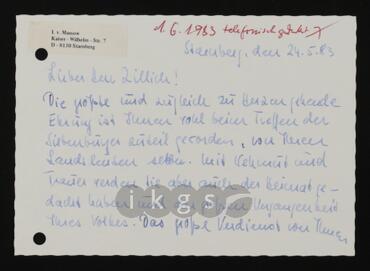 I. v. Manow
Kaiser - Wilhelm - Str. 7
D - 8130 Starnberg
1.6.1983 telefonisch gedankt
Starnberg, den 24.5.83
Lieber Herr Zillich!
Die größte und zugleich zu Herzen gehende
Ehrung ist Ihnen wohl beim Treffen der
Siebenbürger zuteil geworden, von Ihren
Landsleuten selbst. Mit Wehmut und
Trauer werden Sie aber auch der Heimat ge-
dacht haben und der großen Vergangenheit
Ihres Volkes. Das große Verdienst von Ihnen
ikgs